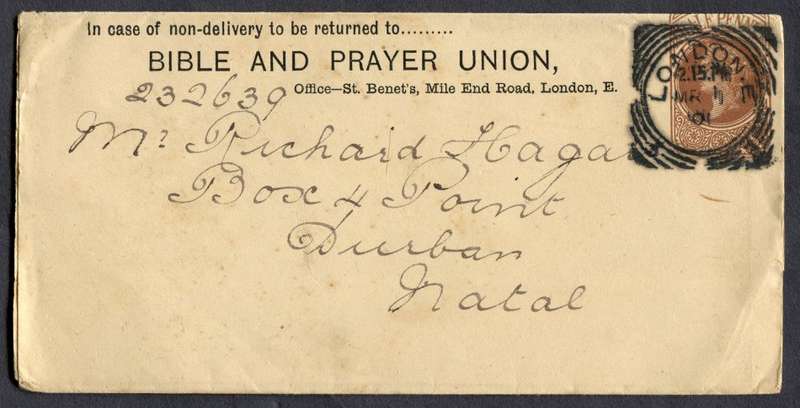 In case of non-delivery to be returned to.........
BIBLE AND PRAYER UNION,
232639 Office—St. Benet's, Mile End Road, London, E.
Mr Richard Hagar
Box 4 Point
Durban
Natal
LONDON. E
2.15.PM
MR 1
01
3